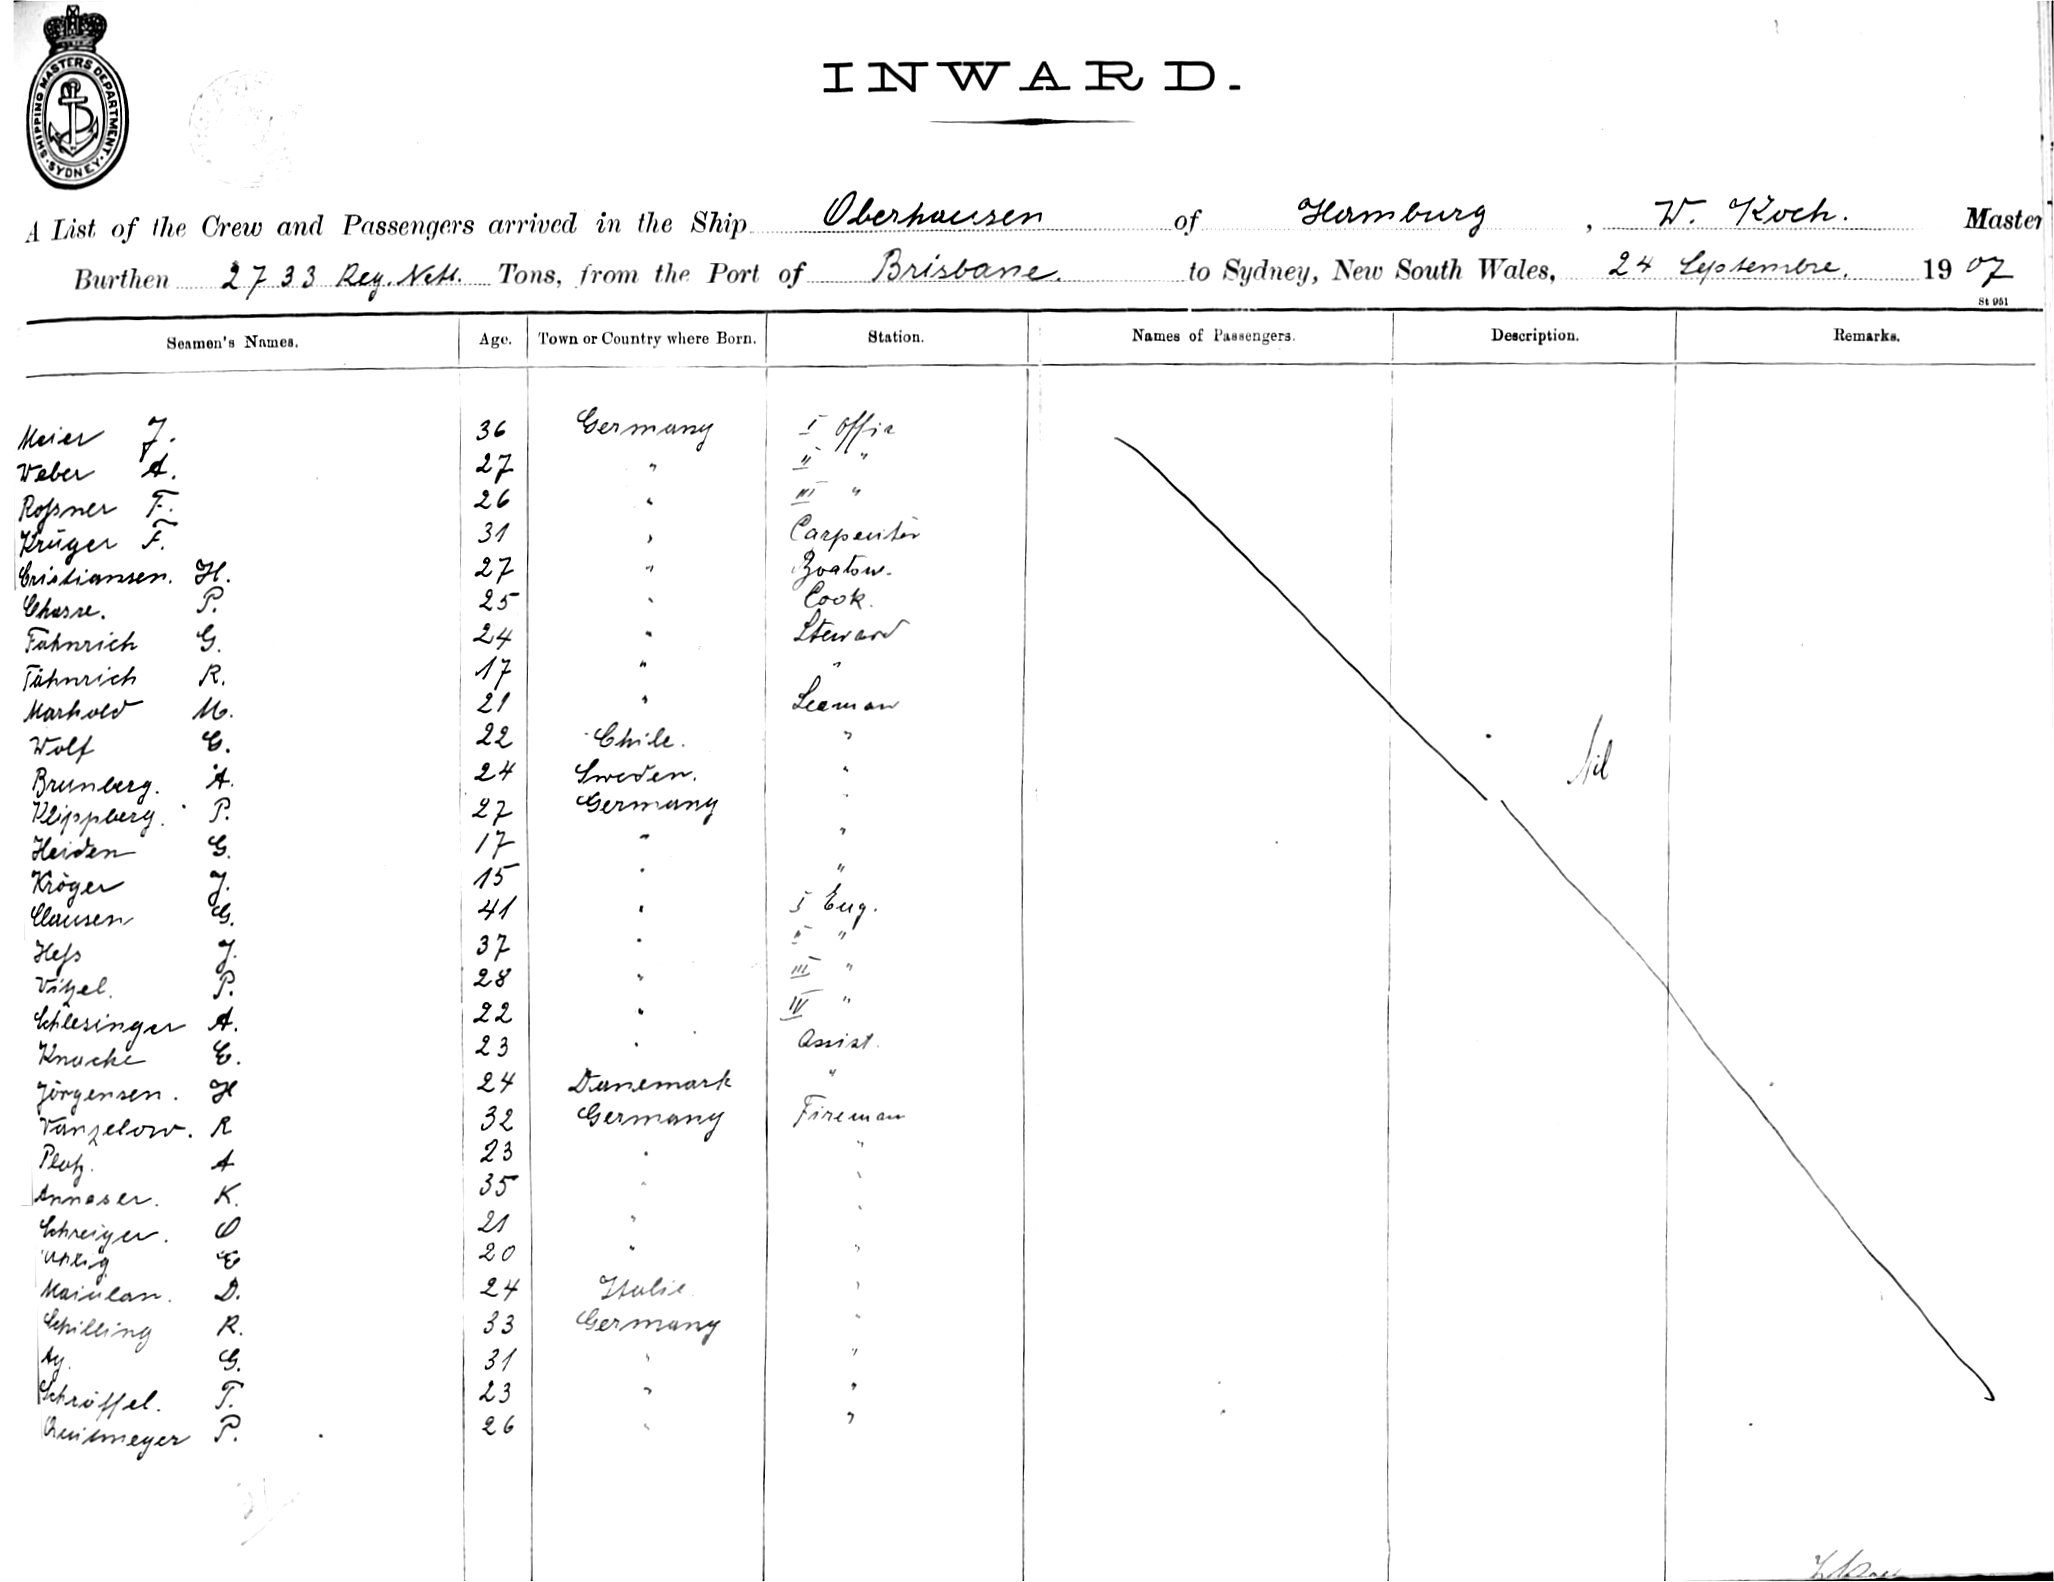 SHIPPING MASTERS DEPARTMENT. SYDNEY
INWARD.
A List of the Crew and Passengers arrived in the Ship Oberhausen of Hamburg, W. Koch. Master
Burthen 2733 Reg. Nett. Tons, from the Port of Brisbane. to Sydney, New South Wales, 24 Septembre. 1907
St 951
Seamen's Names. Age. Town or Country where Born. Station. Names of Passengers. Description. Remarks.
Meier J. 36 Germany I Offic
Weber A. 27 " II "
Roßner F. 26 " III "
Krüger F. 31 " Carpenter
Cristiansen. H. 27 " Boatsw.
Chasse. P. 25 " Cook.
Fähnrich G. 24 " Steward
Fähnrich R. 17 " "
Marhold M. 21 " Seaman
Wolf C. 22 Chile. "
Brunberg. A. 24 Sweden. "
Nil
Klippberg. P. 27 Germany "
Heiden G. 17 " "
Kröger J. 15 " "
Clausen G. 41 " I Eng.
Heß J. 37 " II "
Vitzel. P. 28 " III "
Schlesinger A. 22 " IV "
Knacke E. 23 " Assist.
Jörgensen. H 24 Danemark "
Vanzelow. R 32 Germany Fireman
Platz. A 23 " "
Annaser. K. 35 " "
Schreiger. O 21 " "
Uhlig E 20 " "
Mainlan. D. 24 Italie "
Schilling R. 33 Germany "
Ay. G. 31 " "
Schröffel. T. 23 " "
P. 26 " "